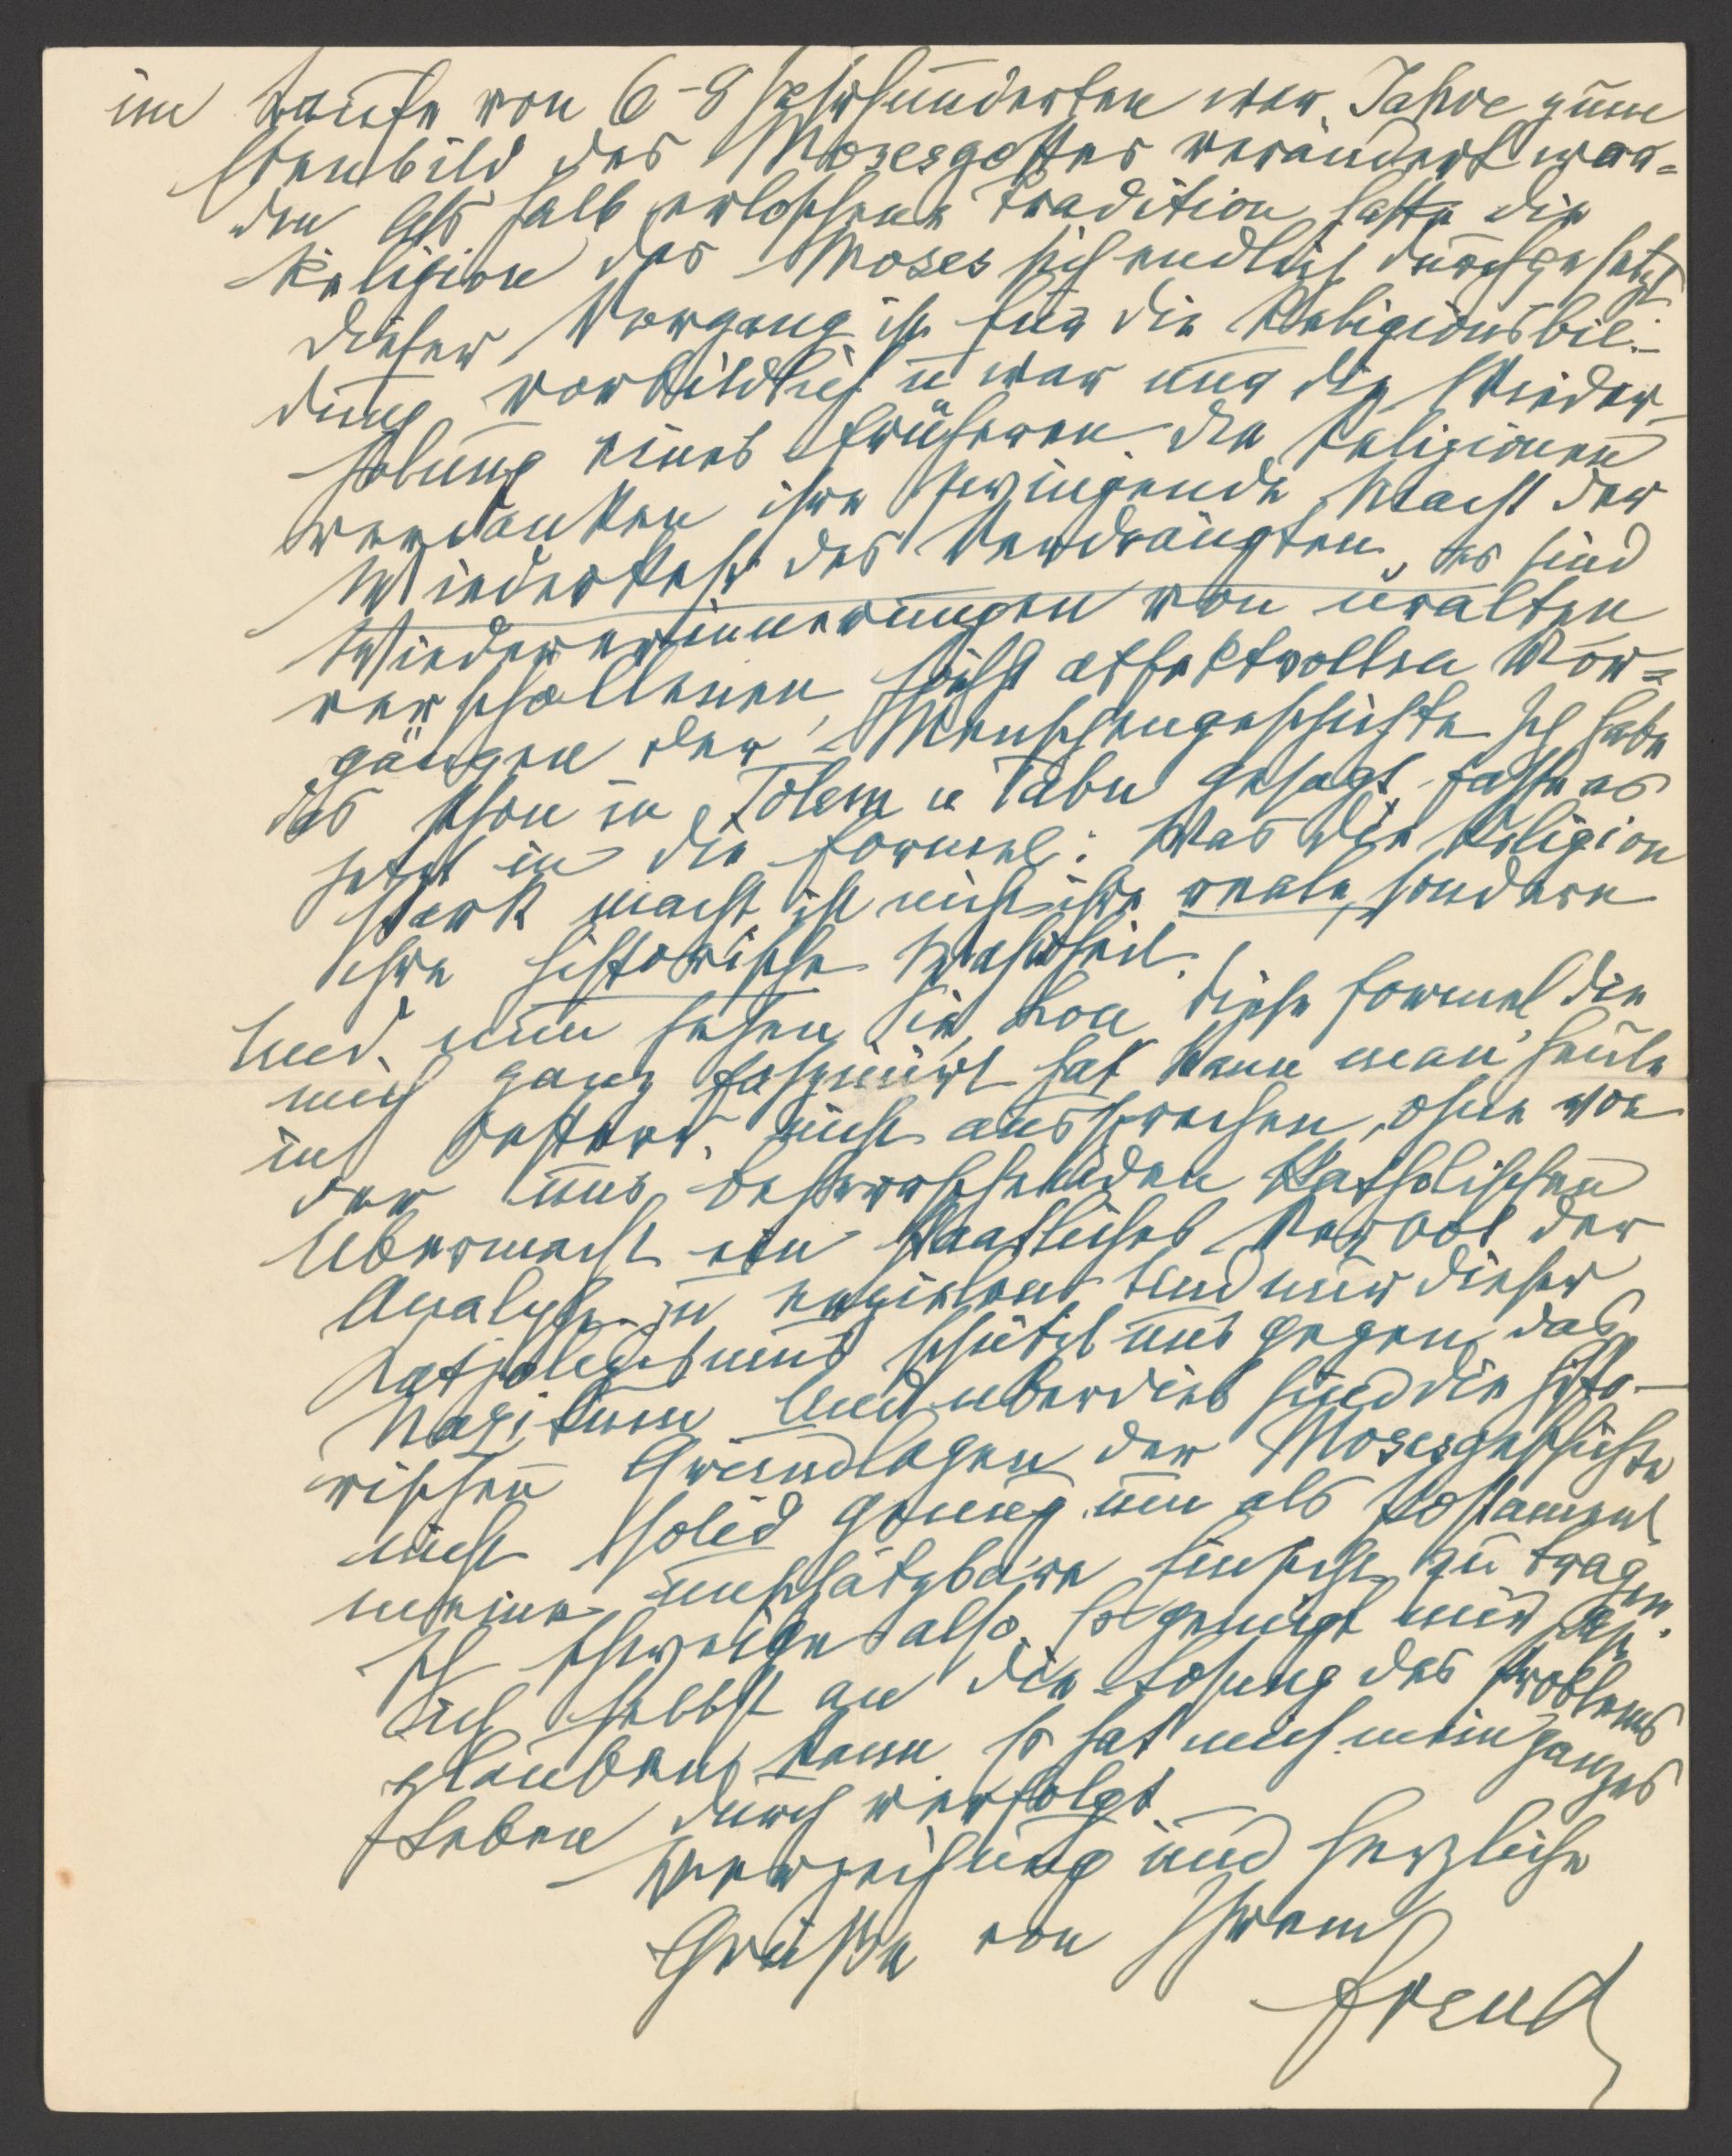 im Laufe von 6-8 Jahrhunderten war Jahve zum
Ebenbild des Mosesgottes verändert wor=
den Als halb erloschene Tradition hatte die
Religion des Moses sich endlich durchgesetzt
Dieser Vorgang ist für die Religionsbil-
dung vorbildlich u war nur die Wieder-
holung eines früheren Die Religionen
verdanken ihre zwingende Macht der
Wiederkehr des Verdrängten, es sind
Wiedererinnerungen von uralten
verschollenen, höchst effektvollen Vor=
gängen der Menschengeschichte Ich habe
das schon in Totem u Tabu gesagt fasse es
jetzt in die Formel: Was die Religion
stark macht, ist nicht ihre reale, sondern
ihre historische Wahrheit.
Und nun sehen Sie, Lou, diese Formel, die
mich ganz fasziniert hat kann man heute
in Österr. nicht aussprechen, ohne von
der uns beherrschenden katholischen
Übermacht ein staatliches Verbot der
Analyse zu erzielen Und nur dieser
Katholizismus schützt uns gegen das
Nazitum Und überdies sind die histo-
rischen Grundlagen der Mosesgeschichte
nicht solid genug um als Postament
meiner unschätzbaren Einsicht zu tragen.
Ich schweige also. Es genügt mir daß
ich selbst an die Lösung des Problems
glauben kann Es hat mich mein ganzes
Leben durch verfolgt
Verzeihung und herzliche
Grüße von Ihrem
Freud